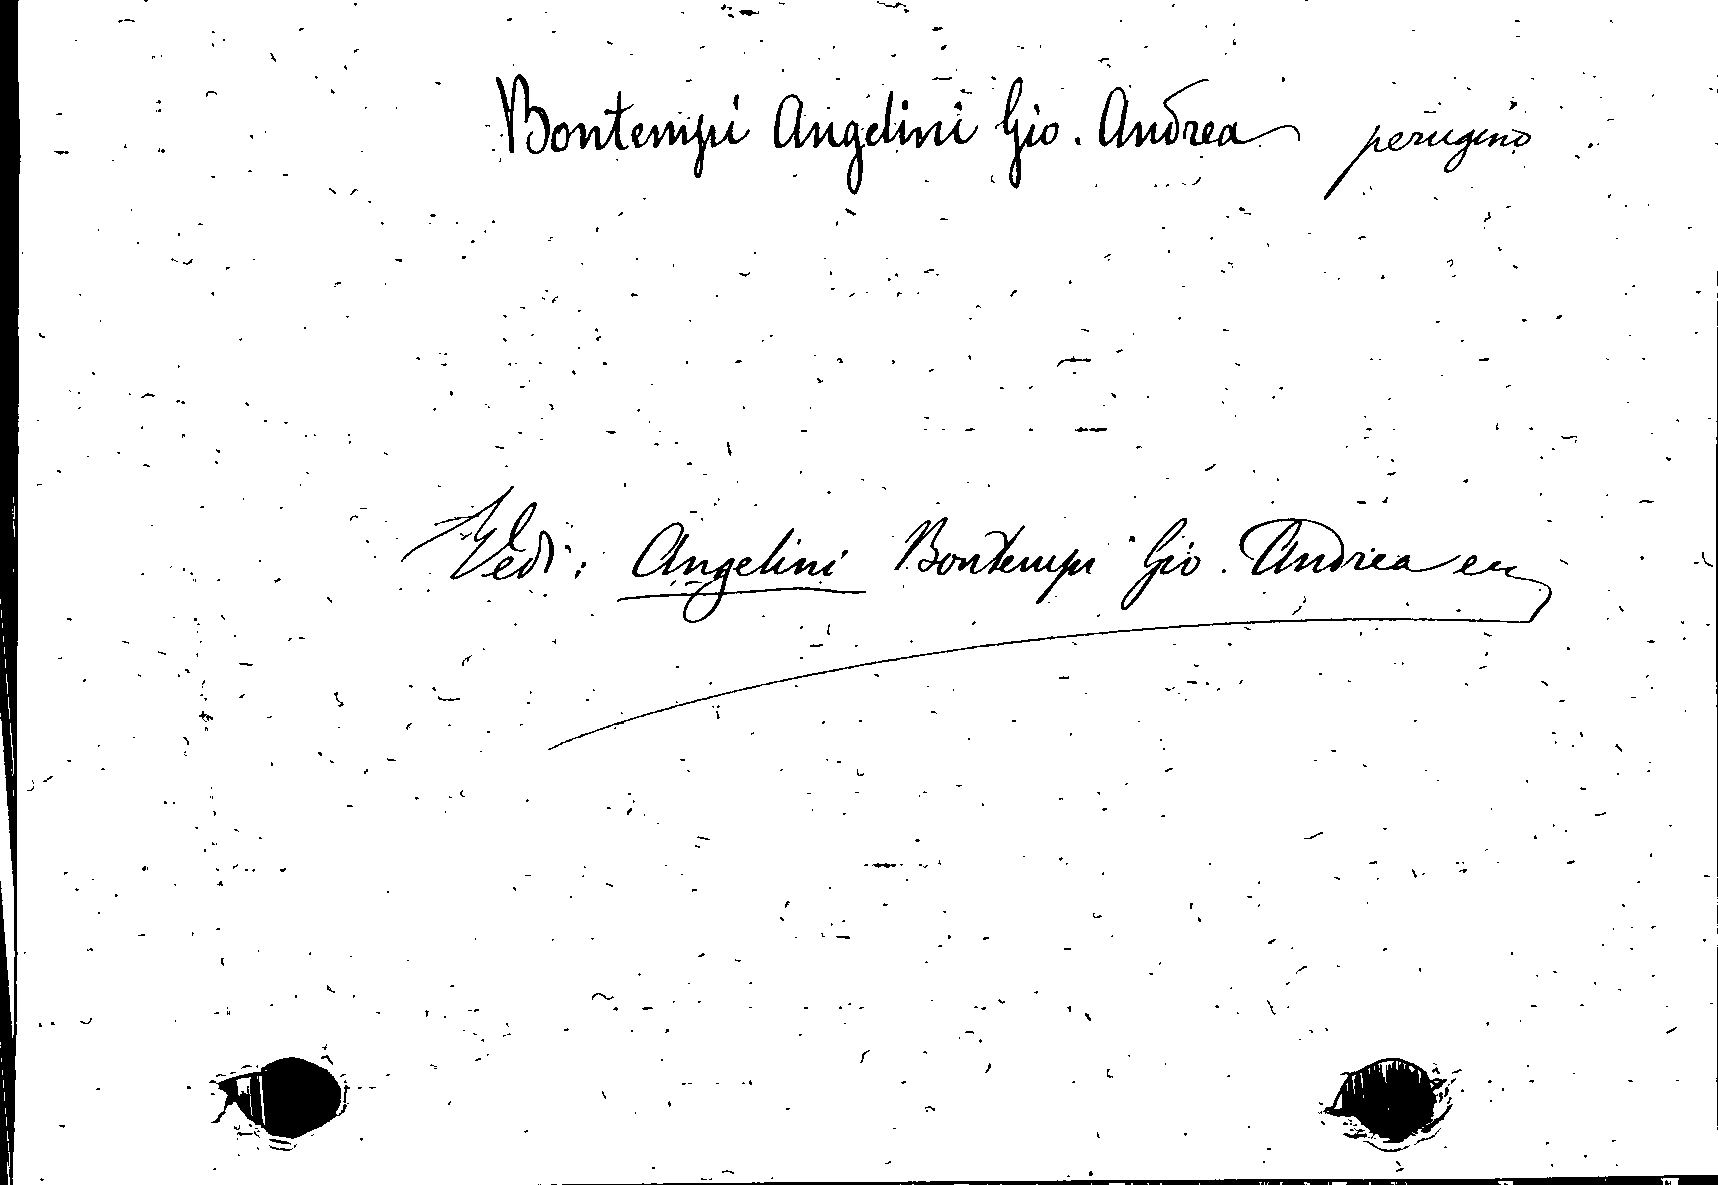 Bontempi Angelini Gio. Andrea perugino
Vedi: Angelini Bontempi Gio. Andrea